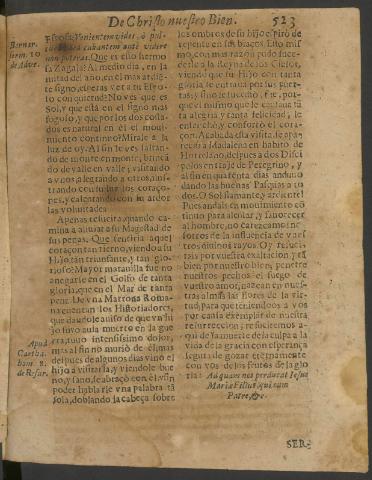 De Christo nuestro Bien.
523
Bernar.
serm. 10
de Adve.
Esposa: Venientem vides, ô pul-
cubantem ante videre
non poteras. Que es esso hermo
sa Zagala? Al medio dia, en la
mitad del año, en el mas ardiẽ
te signo, esperas ver a tu Espo-
so con quietud? No ves que es
Sol, y que està en el signo mas
fogoso, y que por los dos costa-
dos es natural en el el movi-
miento continuo? Mirale à la
luz de oy. Al sin le ves saltan-
do de monte en monte, brincã
do de valle en valle; visitando
a vnos, alegrando a otros, ilus-
trando con su luz los coraço-
nes, y calentando con su ardor
las voluntades.
Apenas resucita, quando ca-
mina a aliviar a su Magestad de
sus penas. Que tendria aquel
coraçon tan tierno, viendo su
Hijo tan triunfante, y tan glo-
rioso? Mayor maravilla fue no
anegarse en el Golfo de tanta
gloria, que en el Mar de tanta
pena. De vna Matrona Roma-
na cuentan los Historiadores,
que dandole auiso de que vn hi
jo suyo auia muerto en la gue
rra, tuuo intensissimo dolor,
mas al fin no murio de el; mas
despues de algunos dias vino el
hijo à visitarla, y viendole bue
no, y sano, le abraçò con el, y sin
poder hablarle vna palabra tã
sola, doblando la cabeça sobre
Apud
Cartha.
hom.
de Resur.
los ombros de su hijo espirò de
repente en sus braços. Esto mis
mo, con mas razon pudo suce-
derle a la Reyna de los Cielos,
viendo que su Hijo con tanta
gloria se entraua por sus puer-
tas; y sino le sucediò, fue, por-
que el mismo que le causaua tã
ta alegria, y tanta felicidad, le
enterneciò, y confortò el cora-
çon. Acabada esta visita, se apa-
reciò a Madalena en habito de
Hortelano, despues a dos Disci
pulos en traje de Peregrino, y
al fin en quarenta dias anduuo
dando las buenas Pasquas a to
dos. O Sol flamante, y ardiente!
Pues andais en mouimiento cõ
tinuo para alentar, y fauorecer
al hombre, no carezcamos no-
sotros de la influencia de vues
tros diuinos rayos. Oy resuci-
tais por vuestra exaltacion, y tã
bien por nuestro bien, penetre
nuestros pechos el fuego de
vuestro amor, nazcan en nues-
tras almas las flores de la vir-
tud, para que teniendoos a vos
por causa exemplar de nuestra
resurreccion, resucitemos a-
qui de la muerte de la culpa a la
vida de la gracia con esperança
segura de gozar eternamente
con vos de los frutos de la glo-
ria: Ad quam nos perducat Iesus
Mariæ Filius, qui cum
Patre, &c.
SER-